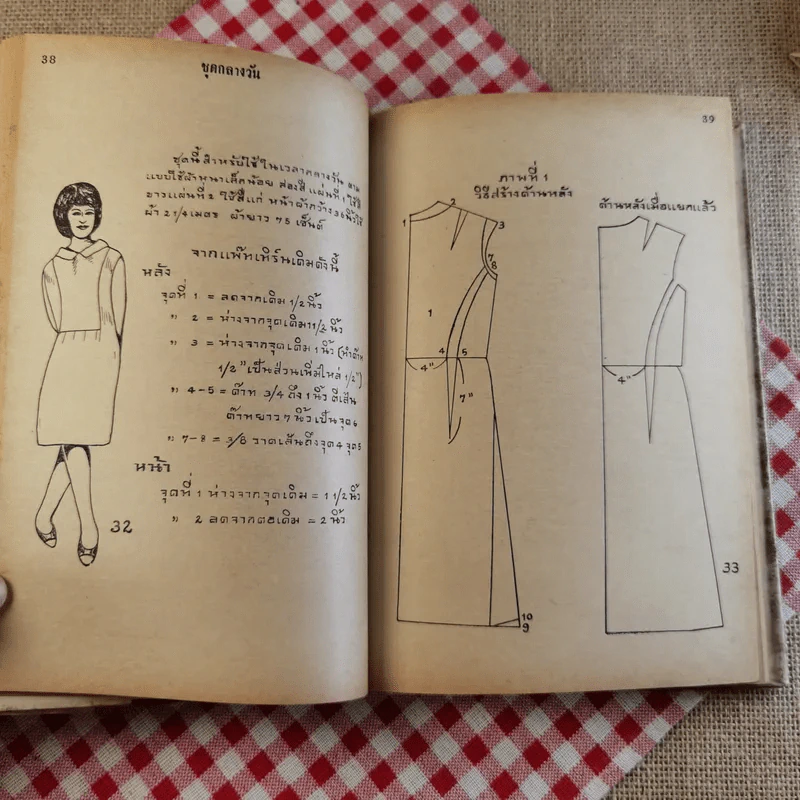 38
ชุดกลางวัน
ชุดนี้สำหรับใช้ในเวลากลางวัน ตาม
แบบใช้ผ้าหนาเล็กน้อย สองสี แผ่นที่ 1 ใช้สี
ขาวแผ่นที่ 2 ใช้สีแก่ หน้าผ้ากว้าง 36 นิ้วใช้
ผ้า 2 1/4 เมตร ผ้ายาว 75 เซ็นต์
จากแพ๊ทเทิร์นเดิมดังนี้
หลัง
จุดที่ 1 = ลดจากเดิม 1/2 นิ้ว
" 2 = ห่างจากจุดเดิม 1 1/2 นิ้ว
" 3 = ห่างจากจุดเดิม 1 นิ้ว
1/2" เป็นส่วนเพิ่มไหล่ 1/2")
" 4-5 = ด๊าท 3/4 ถึง 1 นิ้ว ตีเส้น
ด๊าทยาว 7 นิ้ว เป็นจุด 6
" 7-8 = 3/8 วาดเส้นถึงจุด 4 จุด 5
หน้า
จุดที่ 1 ห่างจากจุดเดิม = 1 1/2 นิ้ว
" 2 ลดจากคอเดิม = 2 นิ้ว
32
39
ภาพที่ 1
วิธีสร้างด้านหลัง
ด้านหลังเมื่อแยกแล้ว
1
2
3
7
8
1
4
5
4"
7"
10
9
4"
33